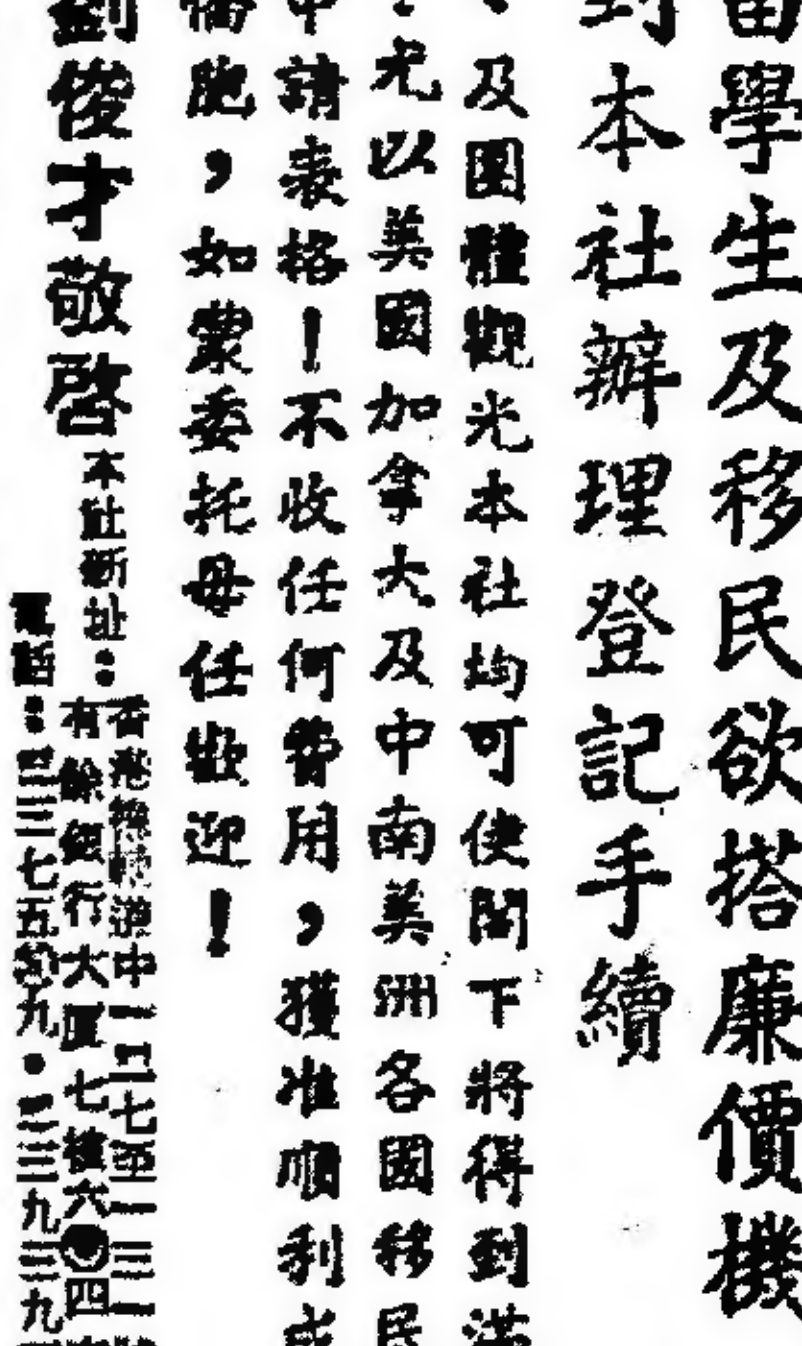 留學生及移民欲搭廉價機
到本社辦理登記手續
、及團體觀光本社均可使閣下將得到滿
尤以美國加拿大及中南美洲各國移民
申請表格！不收任何費用，獲准順利成
僑胞，如蒙委托毋任歡迎！
劉俊才敬啓
本社新址：
香港德輔道中一二七至一三一號
有餘銀行大厦七樓六〇四
電話：四三七五 九・ 三九三九